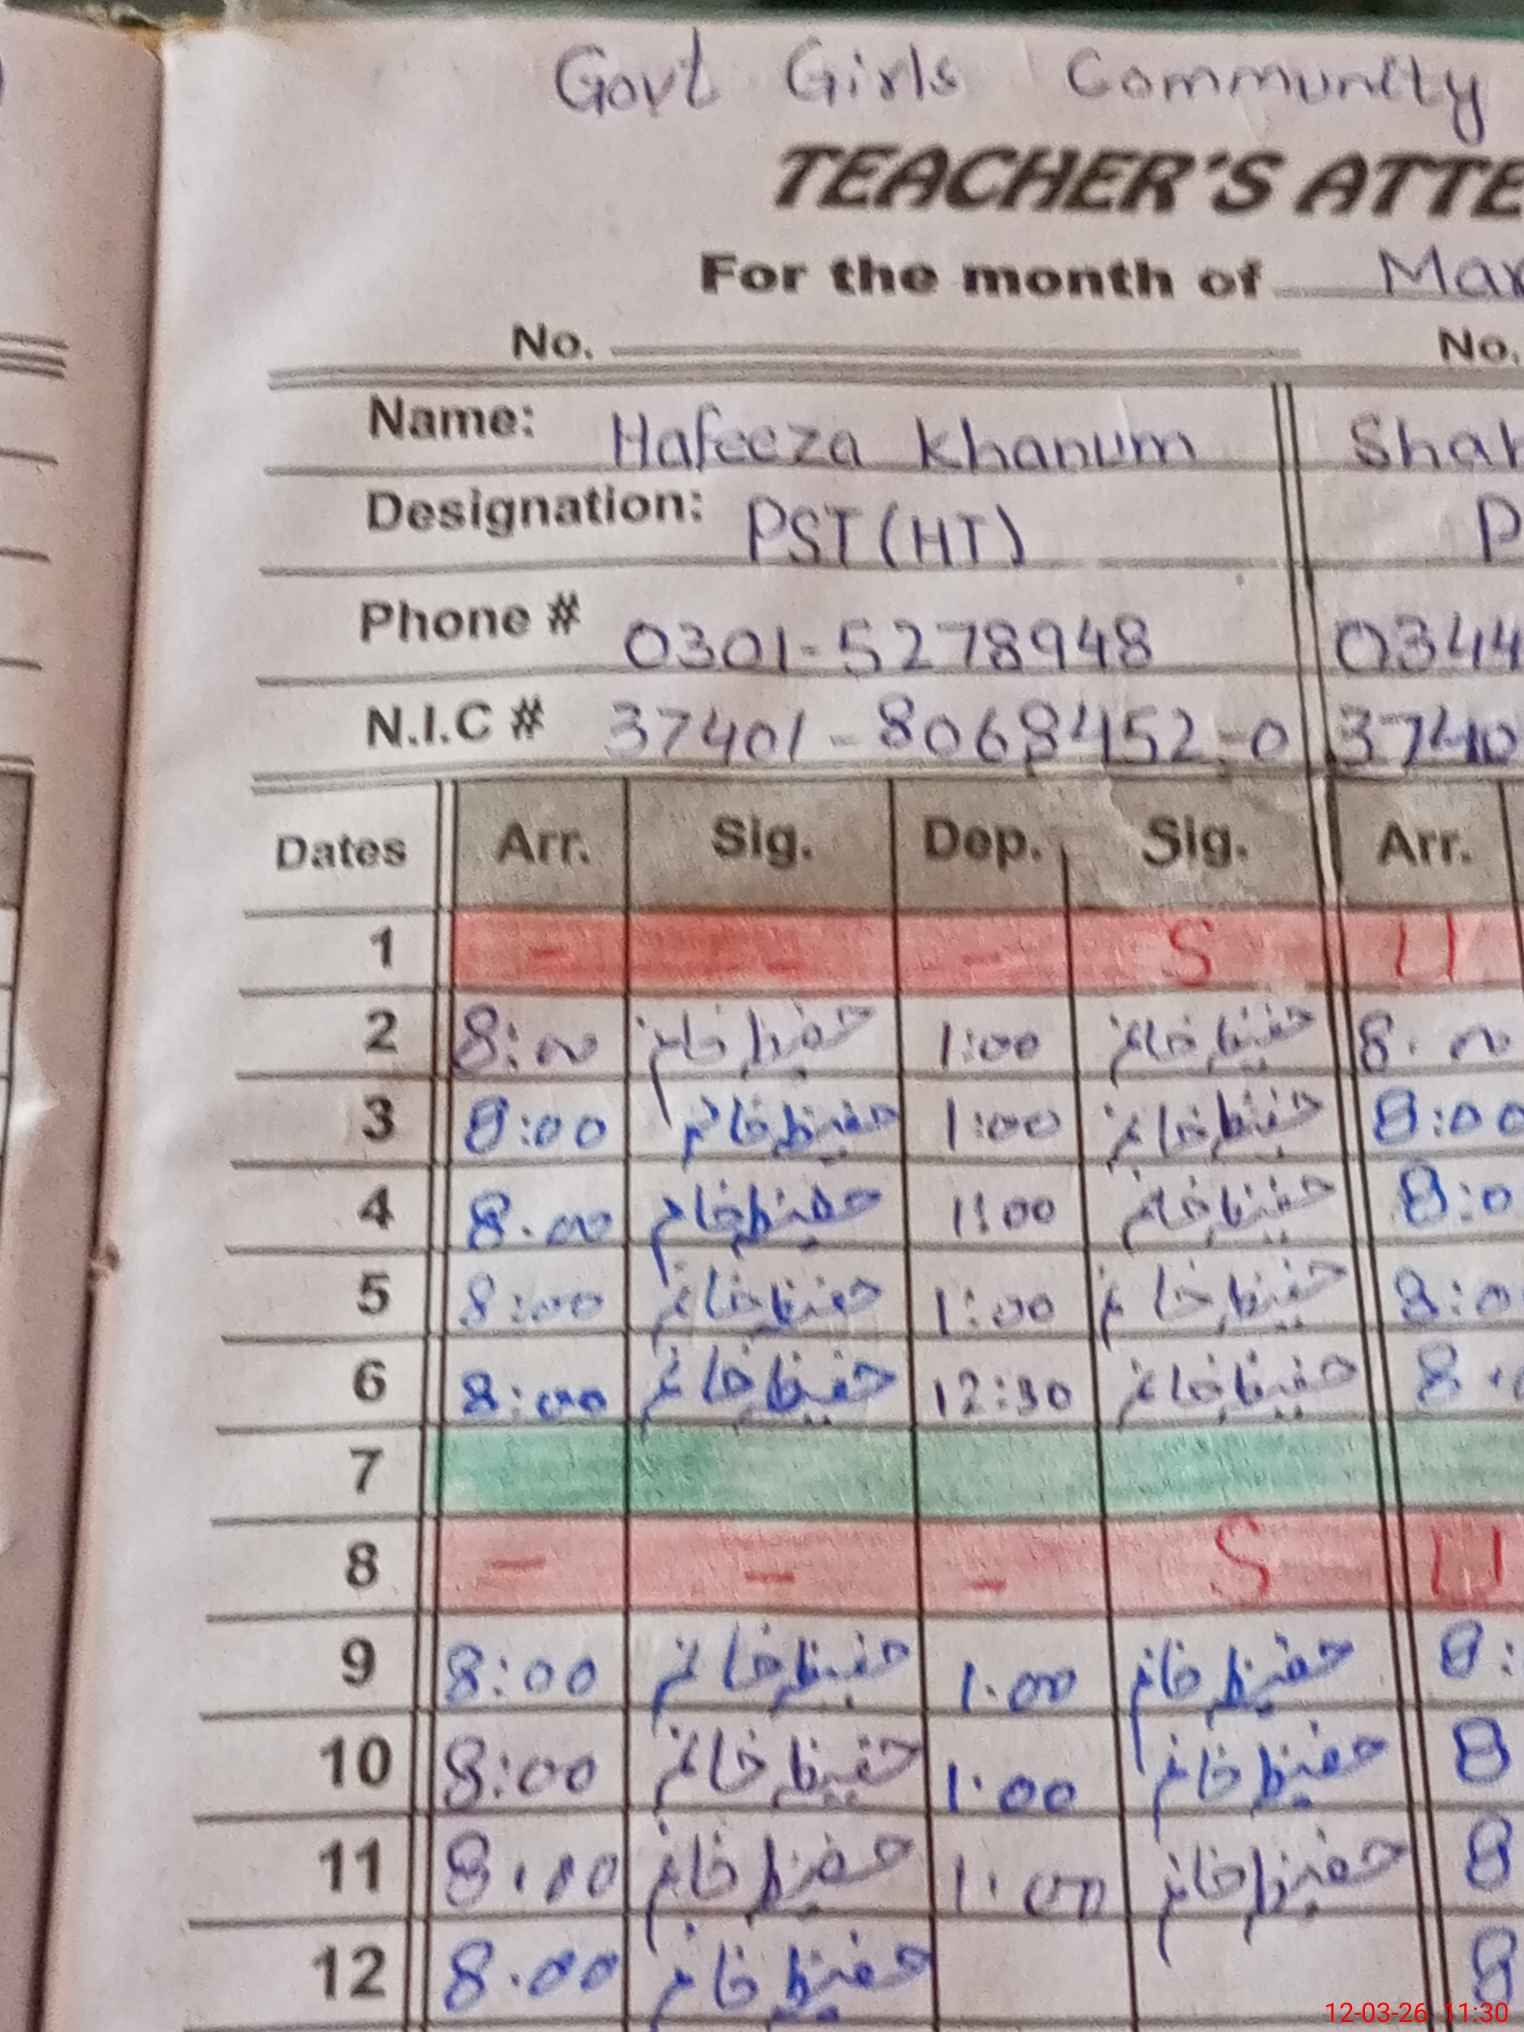 Govt Girls Community
TEACHER'S ATTE
For the month of Mar
No. No.
Name: Hafeeza Khanum Shah
Designation: PST (HT) P
Phone # 0301-5278948 0344
N.I.C # 37401-8068452-0 3740
Dates Arr. Sig. Dep. Sig. Arr.
1 - - - S U
2 8:00 حفیظ خانم 1:00 حفیظ خانم 8.00
3 8:00 حفیظ خانم 1:00 حفیظ خانم 8:00
4 8.00 حفیظ خانم 1:00 حفیظ خانم 8:0
5 8:00 حفیظ خانم 1:00 حفیظ خانم 8:0
6 8:00 حفیظ خانم 12:30 حفیظ خانم 8.
7
8 - - - S U
9 8:00 حفیظ خانم 1.00 حفیظ خانم 8:
10 8:00 حفیظ خانم 1:00 حفیظ خانم 8
11 8.00 حفیظ خانم 1.00 حفیظ خانم 8
12 8.00 حفیظ خانم 8
12-03-26 11:30